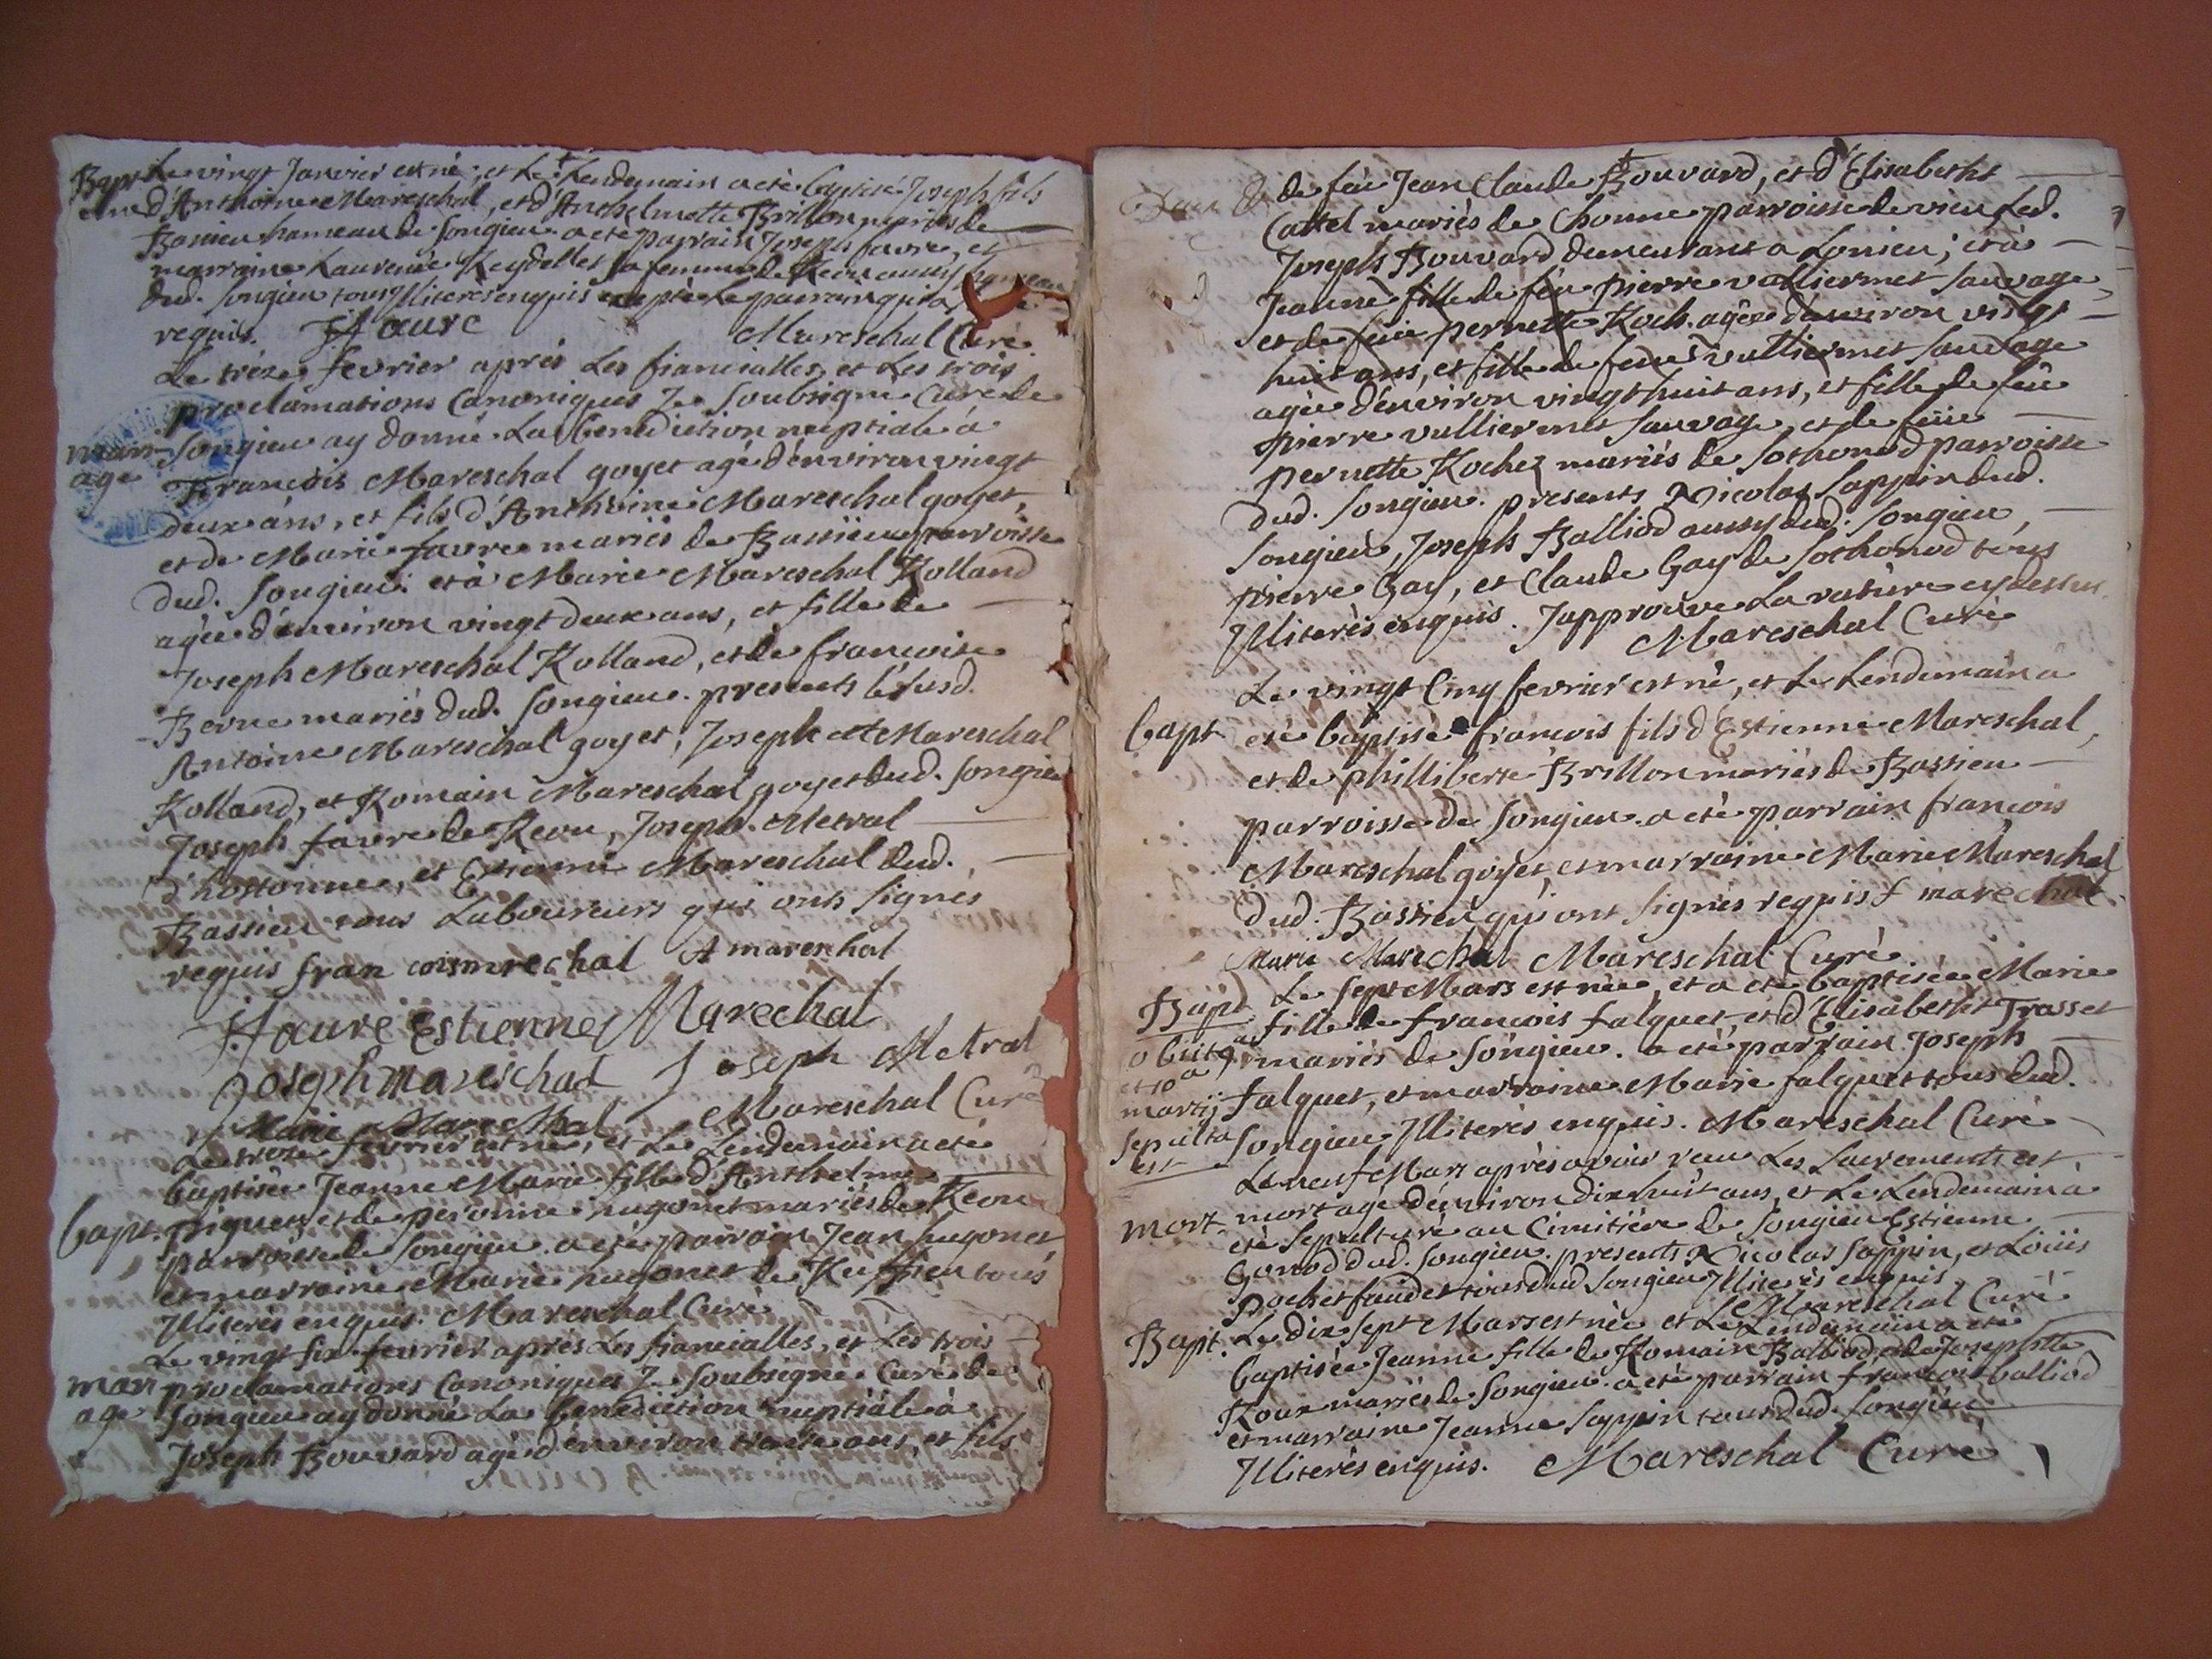 Bapt Le vingt Janvier est né, et Le Lendemain a eté baptisé Joseph fils
d'Anthoine Mareschal, et d'Anthelmette Brillon mariés de
Bassieu hameau de Songieu. a eté parrain Joseph favre, et
marraine Laurence Reydellet sa femme de Reou aussy hameau
dud. Songieu tous Illiterés enquis excepté Le parrain qui a
requis. J faure Mareschal Curé
Le trèze fevrier aprés Les fiancialles, et Les trois
proclamations Canoniques Je Soubsigné Curé de
mari Songieu ay donné La benediction nuptiale à
age François Mareschal goyet agé d'environ vingt
deux ans, et fils d'Anthoine Mareschal goyet,
et de Marie favre mariés de Bassieu parroisse
dud. Songieu: et à Marie Mareschal Rolland
agée d'environ vingt deux ans, et fille de
Joseph Mareschal Rolland, et de francoise
Berne mariés dud. Songieu. presents led susd.
Antoine Mareschal goyet, Joseph Mareschal
Rolland, et Romain Mareschal goyet dud. Songieu
Joseph favre de Reou, Joseph Metral
d'hostonne, et Estienne Mareschal dud.
Bassieu tous Laboureurs qui onts signés
requis fran coismrechal A marenhal
J faure Estienne Marechal
Joseph mareschal Joseph Metral
Marie Marechal Mareschal Curé
Le troze fevrier est né, et Le Lendemain a eté
baptisée Jeanne Marie fille d'Anthelme
bapt. piquet et de peronne hugonet mariés de Reou
parroisse de Songieu. a eté parrain Jean hugonet,
et marraine Marie hugonet de Ruffieu tous
Illiterés enquis. Mareschal Curé
Le vingt six fevrier aprés Les fiancialles, et Les trois
mari proclamations Canoniques Je Soubsigné Curé de
age Songieu ay donné La benediction nuptiale à
Joseph Bouvard agé d'environ trente ans, et fils
de feu Jean Claude Bouvard, et d'Elisabetht
Cattel mariés de Chonne parroisse de vieu Led.
Joseph Bouvard demeurant a Lonieu; et à
Jeanne fille de feu pierre vulliermet sauvage
et de feüe pernette Roch. agée d'environ vingt
huit ans, et fille de feus vulliermet sauvage
agée d'environ vingt huit ans, et fille de feu
pierre vulliermet sauvage, et de feüe
pernette Rochez mariés de Sothonod parroisse
dud. Songieu. presents Nicolas Sappin dud.
Songieu, Joseph Balliod aussy dud. Songieu,
pierre Gay, et Claude Gay de Sothonod tous
Illiterés enquis. J'approuve La rature cy dessus
Mareschal Curé
Le vingt Cinq fevrier est né, et Le Lendemain a
bapt eté baptisé francois fils d'Estienne Mareschal,
et de philliberte Brillon mariés de Bassieu
parroisse de Songieu. a eté parrain françois
Mareschal goyet, et marraine Marie Mareschal
dud. Bassieu qui ont signés requis f marechal
Marie Marechal Mareschal Curé
Bapt Le sept Mars est née, et a eté baptisée Marie
obiit fille de francois falquet, et d'Elisabetht Trasset
et 10a mariés de Songieu. a eté parrain Joseph
martij falquet, et marraine Marie falquet tous dud.
sepulta Songieu Illiterés enquis. Mareschal Curé
est
Le neuf Mars aprés avoir receu Les Sacrements est
mort mort agé d'environ dix huit ans, et Le Lendemain a
eté sepulturé au Cimitiére de Songieu Estienne
Gonod dud. Songieu. presents Nicolas Sappin, et Loüis
pochet faudet tous dud Songieu Illiterés enquis,
Mareschal Curé
Bapt. Le dix sept Mars est née et Le Lendemain a eté
baptisée Jeanne fille de Romain Balliod, et de Josephte
Roux mariés de Songieu. a eté parrain francois balliod
et marraine Jeanne Sappin tous dud. Songieu
Illiterés enquis. Mareschal Curé